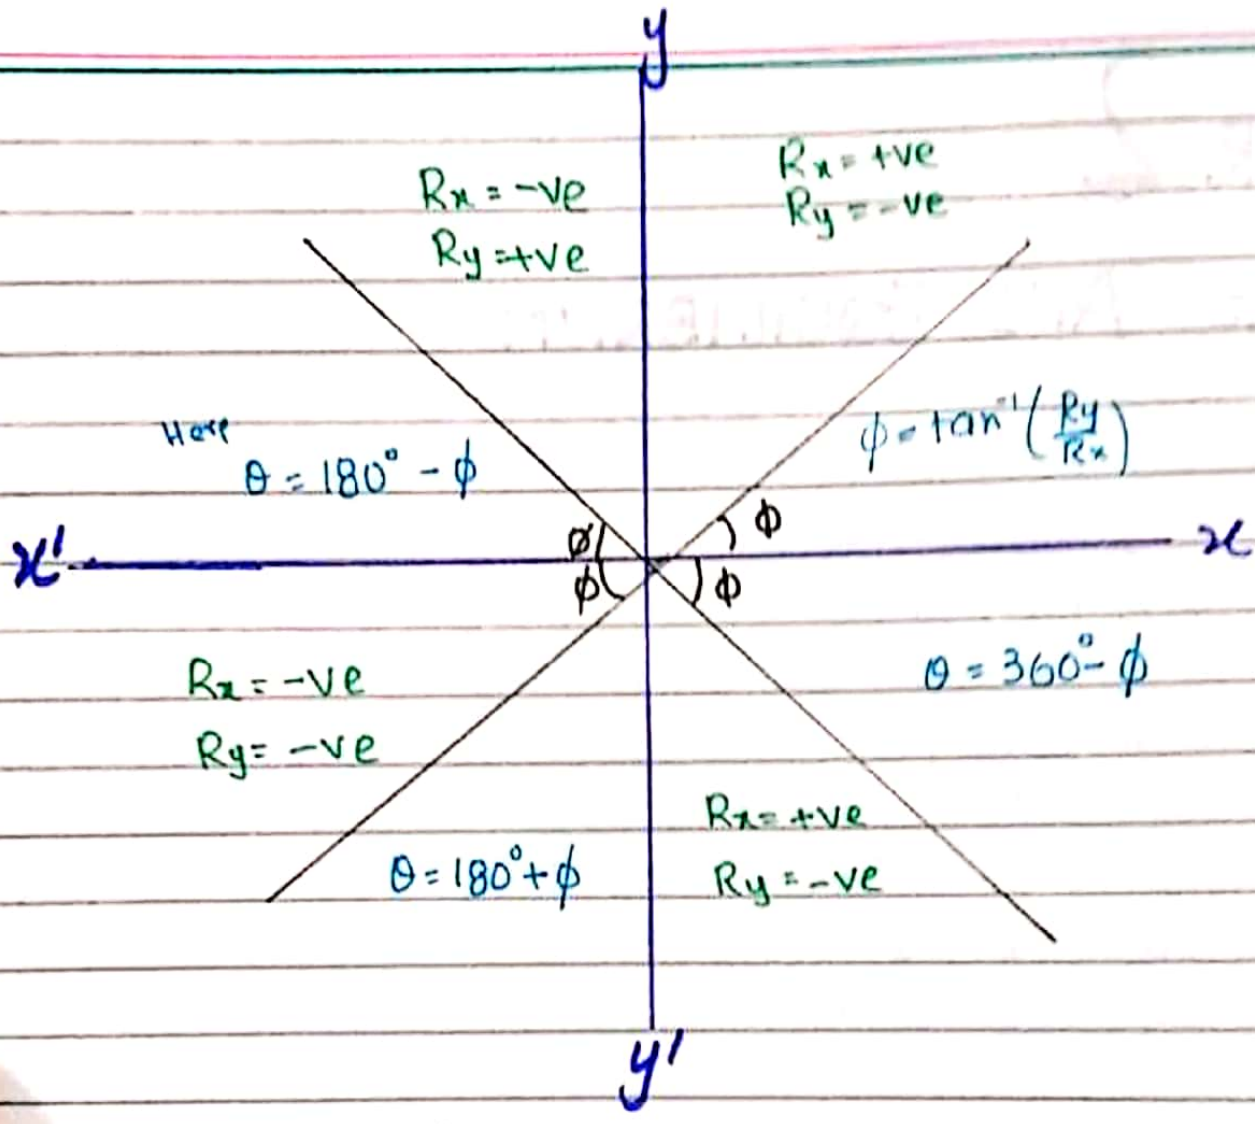 y
Rx = -ve
Ry = +ve
Rx = +ve
Ry = -ve
Here
θ = 180° - ϕ
ϕ = tan⁻¹(Ry/Rx)
ϕ
ϕ
x'
x
ϕ
ϕ
Rx = -ve
Ry = -ve
θ = 360° - ϕ
θ = 180° + ϕ
Rx = +ve
Ry = -ve
y'